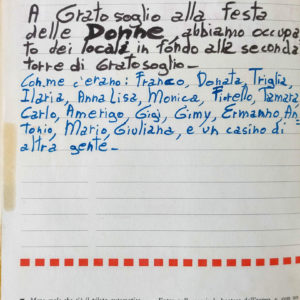 A Gratosoglio alla festa
delle Donne, abbiamo occupa
to dei locali in fondo alla seconda
torre di Gratosoglio_
Con me c'erano: Franco, Donata, Triglia,
Ilaria, Anna Lisa, Monica, Fiorello, Tamara
Carlo, Amerigo, Gigi, Gimy, Ermanno, An
tonio, Mario, Giuliana, e un casino di
altra gente_